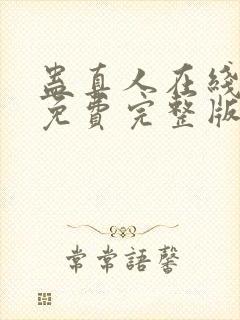 蛊真人在綫
免費完整版
常常語馨